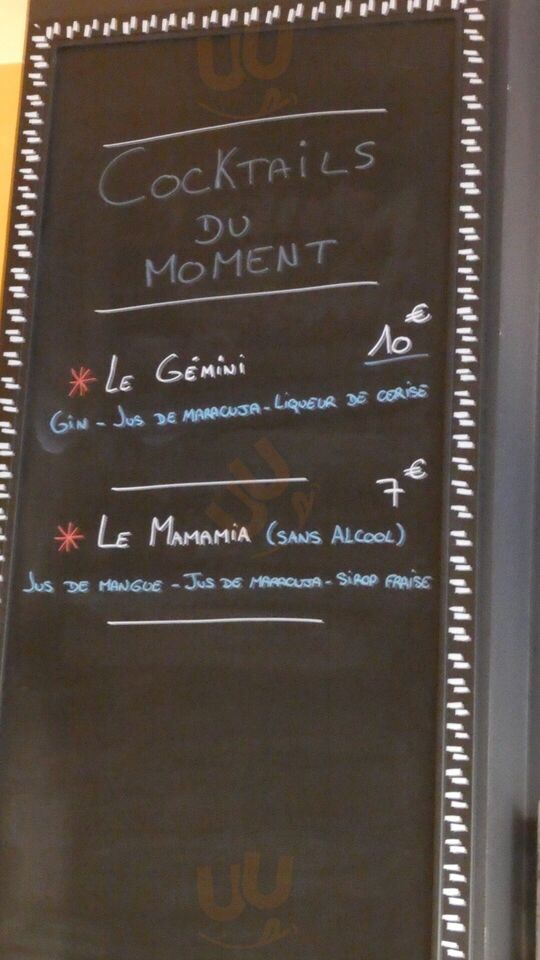 COCKTAILS
DU
MOMENT
* LE GÉMINI 10€
GIN - JUS DE MARACUJA - LIQUEUR DE CERISE
7€
* LE MAMAMIA (SANS ALCOOL)
JUS DE MANGUE - JUS DE MARACUJA - SIROP FRAISE